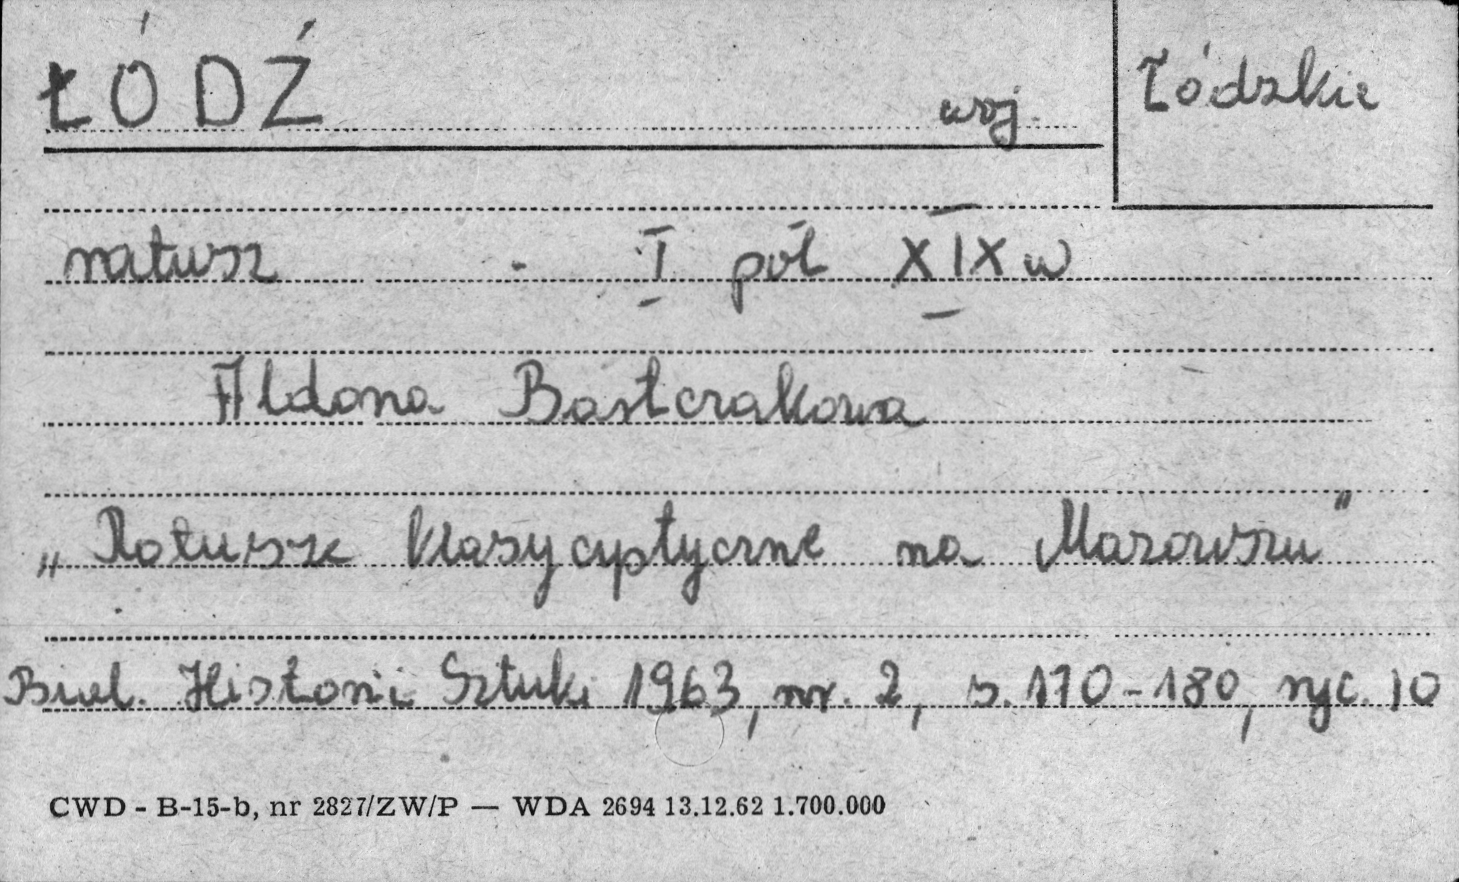 ŁÓDŹ woj. Łódzkie
ratusz - I poł XIX w
Aldona Bartczakowa
„Ratusze klasycystyczne na Mazowszu"
Biul. Historii Sztuki 1963, nr. 2, s. 170-180, ryc. 10
CWD - B-15-b, nr 2827/ZW/P — WDA 2694 13.12.62 1.700.000